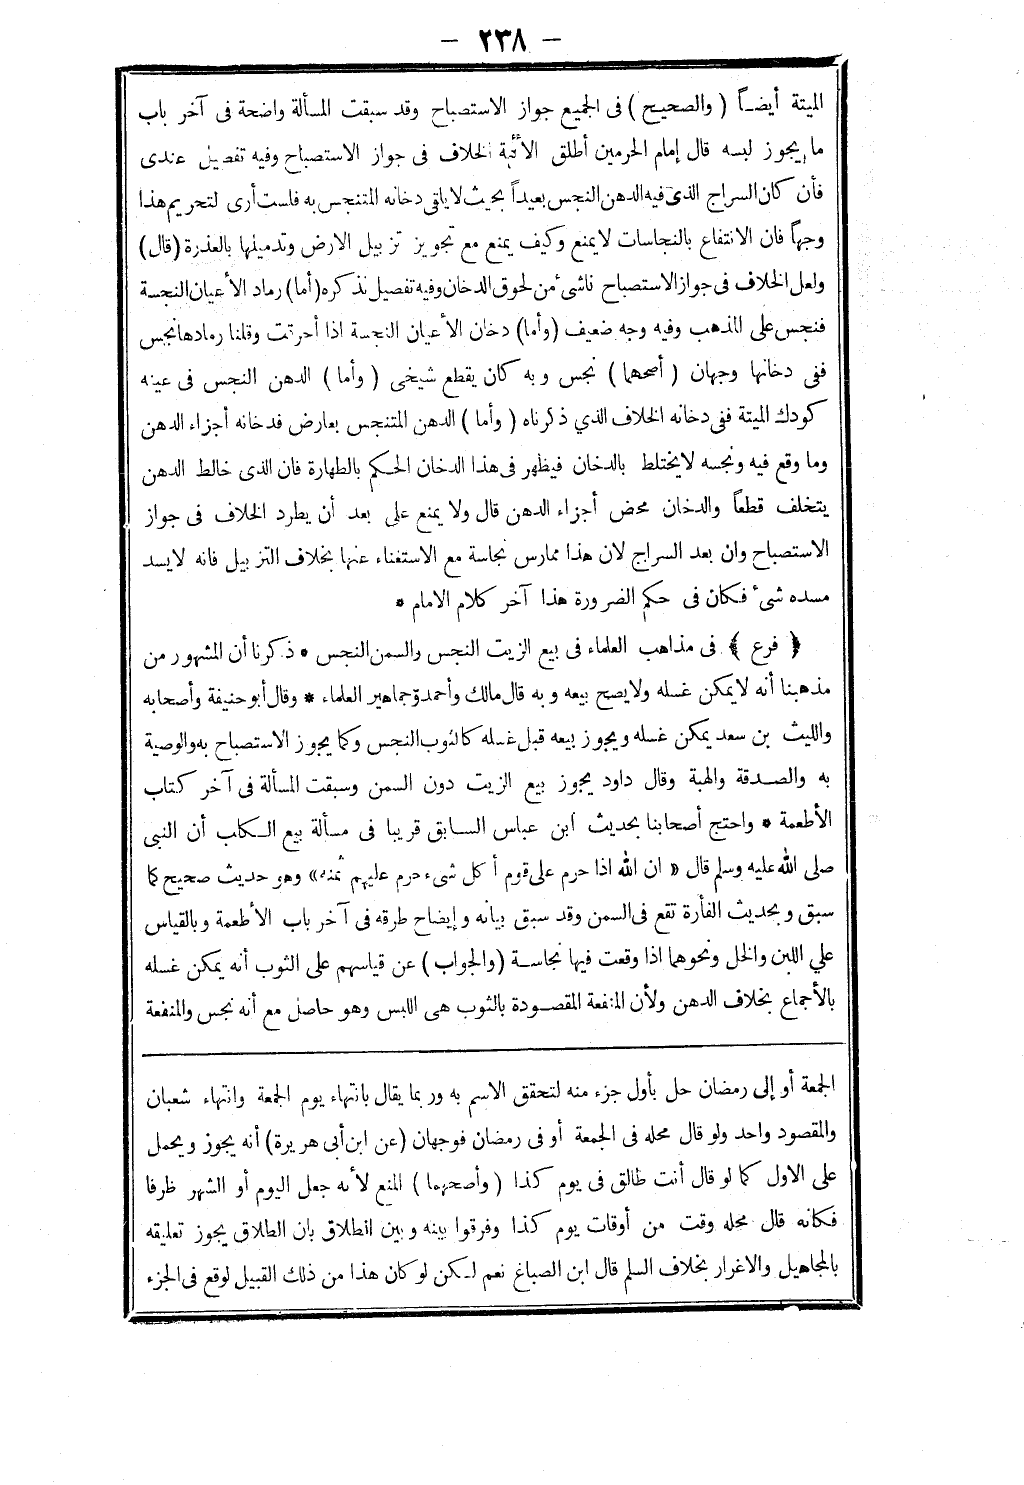 — ٢٣٨ —
الميتة أيضـاً ( والصحيح ) فى الجميع جواز الاستصباح وقد سبقت المسألة واضحة فى آخر باب
ما يجوز لبسه قال إمام الحرمين أطلق الأئمة الخلاف فى جواز الاستصباح وفيه تفصيل عندى
فأن كان السراج الذى فيه الدهن النجس بعيداً بحيث لا يلقى دخانه المتنجس به فلست أرى لتحريم هذا
وجهاً فان الانتفاع بالنجاسات لا يمنع وكيف يمنع مع تجويز تزبيل الارض وتدميلها بالعذرة (قال)
ولعل الخلاف فى جواز الاستصباح ناشئ من لحوق الدخان وفيه تفصيل نذكره (أما) رماد الأعيان النجسة
فنجس على المذهب وفيه وجه ضعيف (وأما) دخان الأعيان النجسة اذا أحرقت وقلنا رمادها نجس
ففى دخانها وجهان ( أصحهما ) نجس وبه كان يقطع شيخى ( وأما ) الدهن النجس فى عينه
كودك الميتة ففى دخانه الخلاف الذي ذكرناه ( وأما ) الدهن المتنجس بعارض فدخانه أجزاء الدهن
وما وقع فيه ونجسه لا يختلط بالدخان فيظهر فى هذا الدخان الحكم بالطهارة فان الذى خالط الدهن
يتخلف قطعاً والدخان محض أجزاء الدهن قال ولا يمنع على بعد أن يطرد الخلاف فى جواز
الاستصباح وان بعد السراج لان هذا ممارس نجاسة مع الاستغناء عنها بخلاف التزبيل فانه لايسد
مسده شئ فكان فى حكم الضرورة هذا آخر كلام الامام *
﴿ فرع ﴾ فى مذاهب العلماء فى بيع الزيت النجس والسمن النجس * ذكرنا أن المشهور من
مذهبنا أنه لا يمكن غسله ولا يصح بيعه وبه قال مالك وأحمد وجماهير العلماء * وقال أبو حنيفة وأصحابه
والليث بن سعد يمكن غسله ويجوز بيعه قبل غسله كالثوب النجس وكما يجوز الاستصباح به والوصية
به والصـدقة والهبة وقال داود يجوز بيع الزيت دون السمن وسبقت المسألة فى آخر كتاب
الأطعمة * واحتج أصحابنا بحديث ابن عباس السـابق قريبا فى مسألة بيع الـكلب أن النبى
صلى الله عليه وسلم قال « ان الله اذا حرم على قوم أكل شىء حرم عليهم ثمنه» وهو حديث صحيح كما
سبق وبحديث الفأرة تقع فى السمن وقد سبق بيانه وإيضاح طرقه فى آخر باب الأطعمة وبالقياس
علي اللبن والخل ونحوهما اذا وقعت فيها نجاسـة (والجواب) عن قياسهم على الثوب أنه يمكن غسله
بالأجماع بخلاف الدهن ولأن المنفعة المقصـودة بالثوب هى اللبس وهو حاصل مع أنه نجس والمنفعة
الجمعة أو إلى رمضان حل بأول جزء منه لتحقق الاسم به وربما يقال بانتهاء يوم الجمعة وانتهاء شعبان
والمقصود واحد ولو قال محله فى الجمعة أو فى رمضان فوجهان (عن ابن أبى هريرة) أنه يجوز ويحمل
على الاول كما لو قال أنت طالق فى يوم كذا ( وأصحهما ) المنع لأنه جعل اليوم أو الشهر ظرفا
فكانه قال محله وقت من أوقات يوم كذا وفرقوا بينه وبين الطلاق بان الطلاق يجوز تعليقه
بالمجاهيل والاغرار بخلاف السلم قال ابن الصباغ نعم لـكن لو كان هذا من ذلك القبيل لوقع فى الجزء